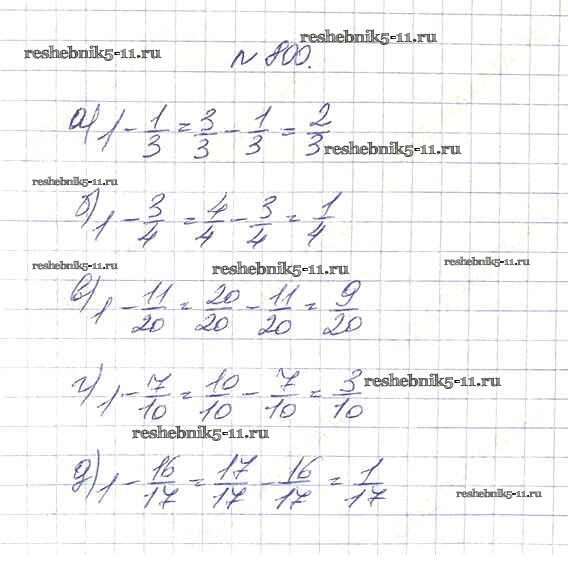 reshebnik5-11.ru
reshebnik5-11.ru
№ 800.
а) 1 - 1/3 = 3/3 - 1/3 = 2/3
reshebnik5-11.ru
reshebnik5-11.ru
б) 1 - 3/4 = 4/4 - 3/4 = 1/4
reshebnik5-11.ru
reshebnik5-11.ru
reshebnik5-11.ru
в) 1 - 11/20 = 20/20 - 11/20 = 9/20
г) 1 - 7/10 = 10/10 - 7/10 = 3/10
reshebnik5-11.ru
reshebnik5-11.ru
д) 1 - 16/17 = 17/17 - 16/17 = 1/17
reshebnik5-11.ru